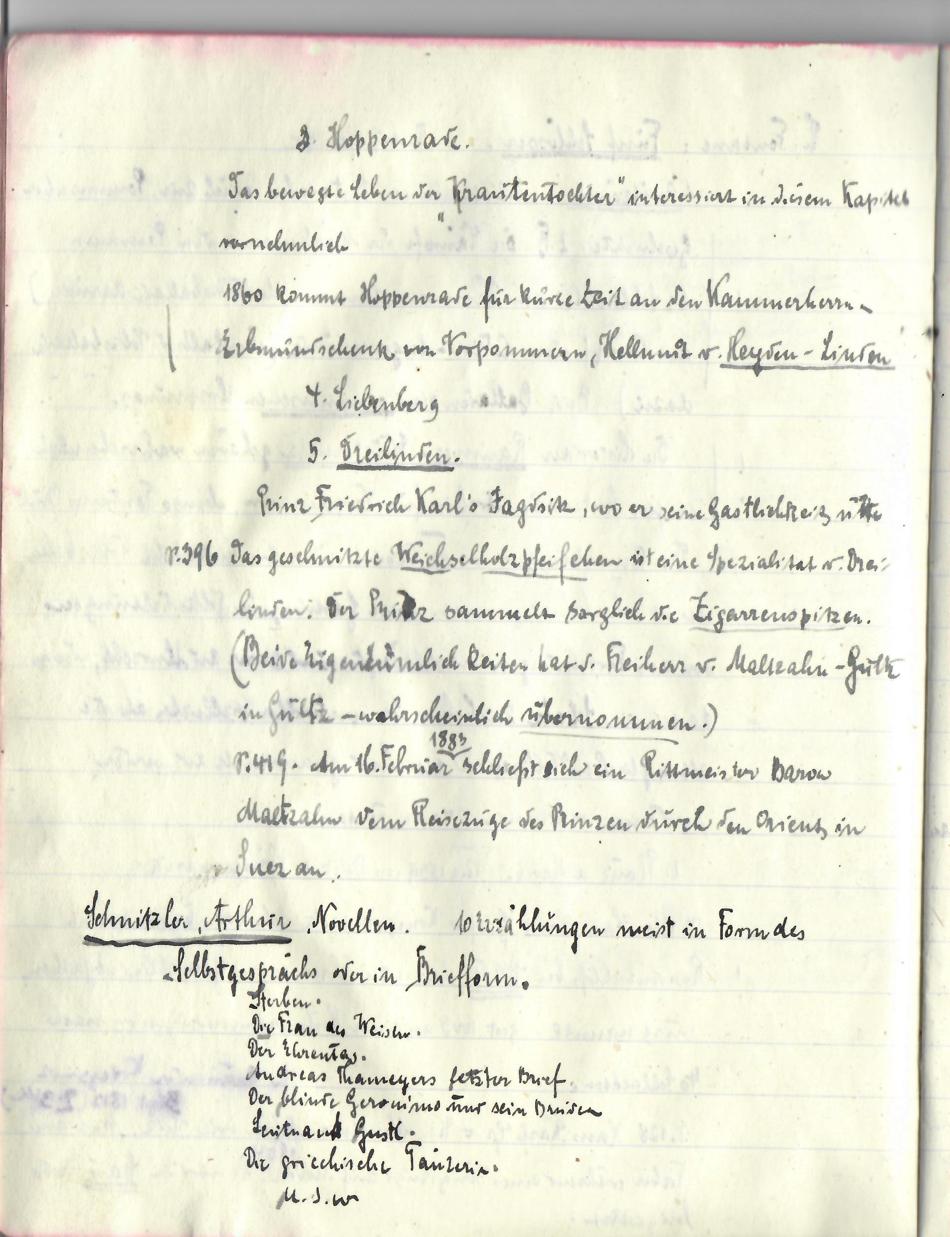 3. Hoppenrade.
Das bewegte Leben der „Krautentochter" interessiert in diesem Kapitel
vornehmlich
1860 kommt Hoppenrade für kurze Zeit an den Kammerherrn-
Erbmundschenk von Vorpommern, Hellmut v. Heyden-Linden
4. Liebenberg
5. Dreilinden.
Prinz Friedrich Karl's Jagdsitz, wo er seine Gastlichkeit übte
S.396 Das geschnitzte Weichselholzpfeifchen ist eine Spezialität v. Drei-
linden. Der Prinz sammelt sorglich die Zigarrenspitzen.
(Beide Eigentümlichkeiten hat d. Freiherr v. Maltzahn-Gültz
in Gültz - wahrscheinlich übernommen.)
1883
S.419. Am 16. Februar schließt sich ein Rittmeister Baron
Maltzahn dem Reisezuge des Prinzen durch den Orient, in
Suez an.
Schnitzler, Arthur, Novellen. 10 Erzählungen meist in Form des
Selbstgesprächs oder in Briefform.
Sterben.
Die Frau des Weisen.
Der Ehrentag.
Andreas Thameyers letzter Brief
Der blinde Geronimo und sein Bruder
Leutnant Gustl.
Die griechische Tänzerin.
u.s.w